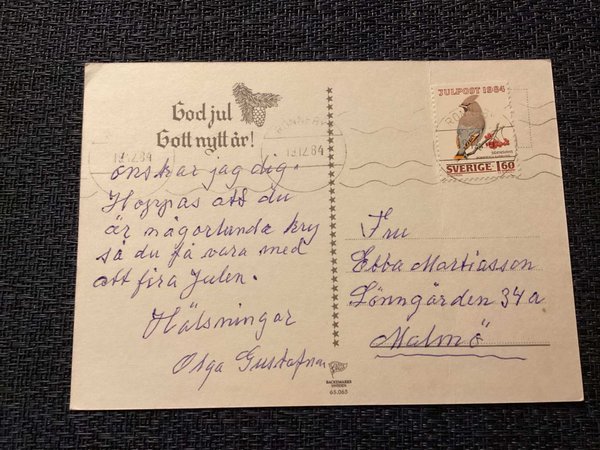 God jul
Gott nytt år!
önskar jag dig.
Hoppas att du
är någorlunda kry
så du få vara med
att fira Julen.
Hälsningar
Olga Gustafson
RONNEBY
19.12.84
19.12.84
JULPOST 1984
SVERIGE 160
Fru
Ebba Martiasson
Lönngården 34 a
Malmö
BACKEMARKS
SWEDEN
65.065